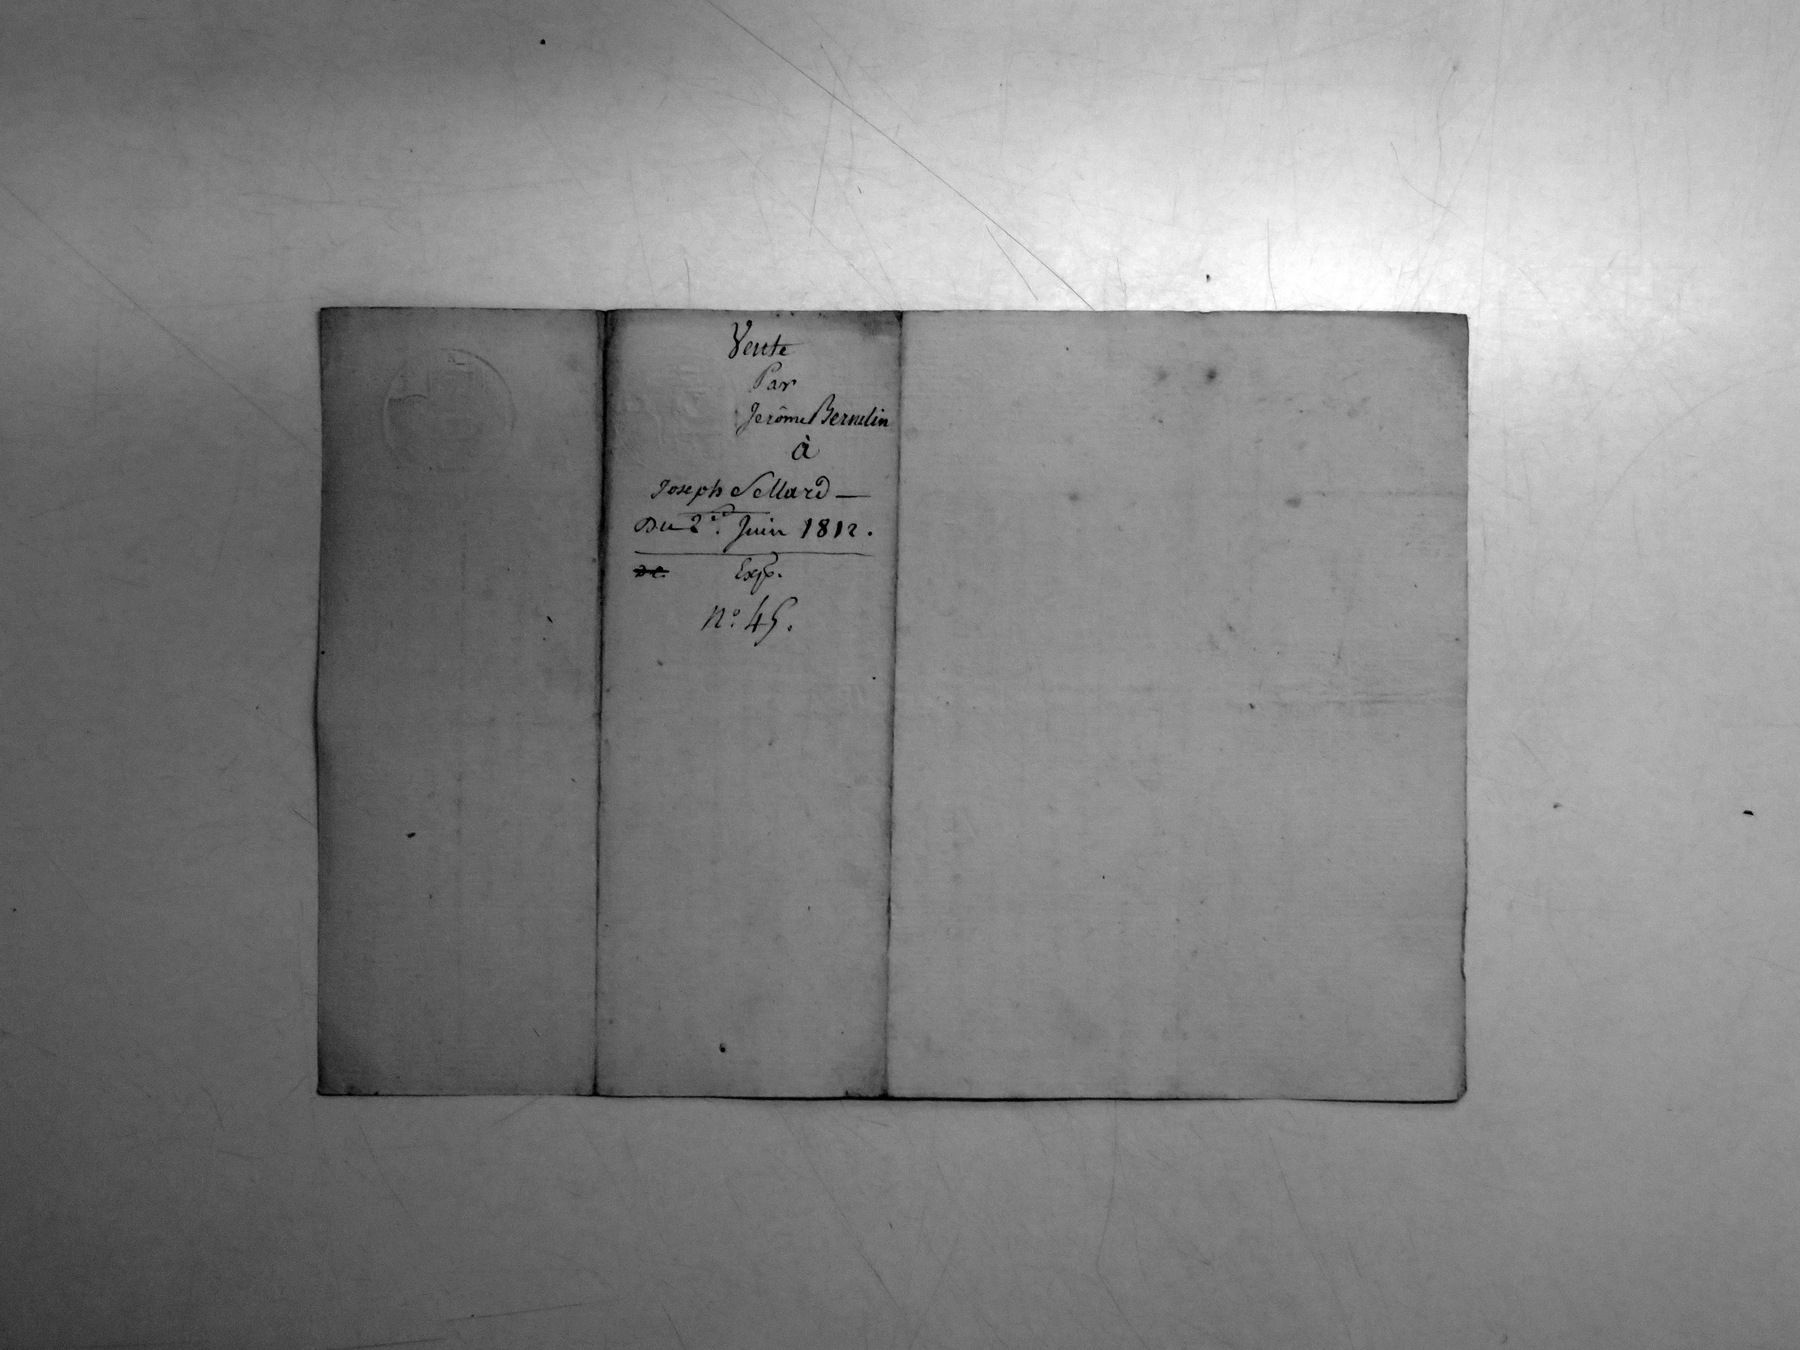 Vente
Par
Jerôme Bernelin
À
Joseph Sellard —
Du 2 Juin 1812.
Exp.
N.º 45.